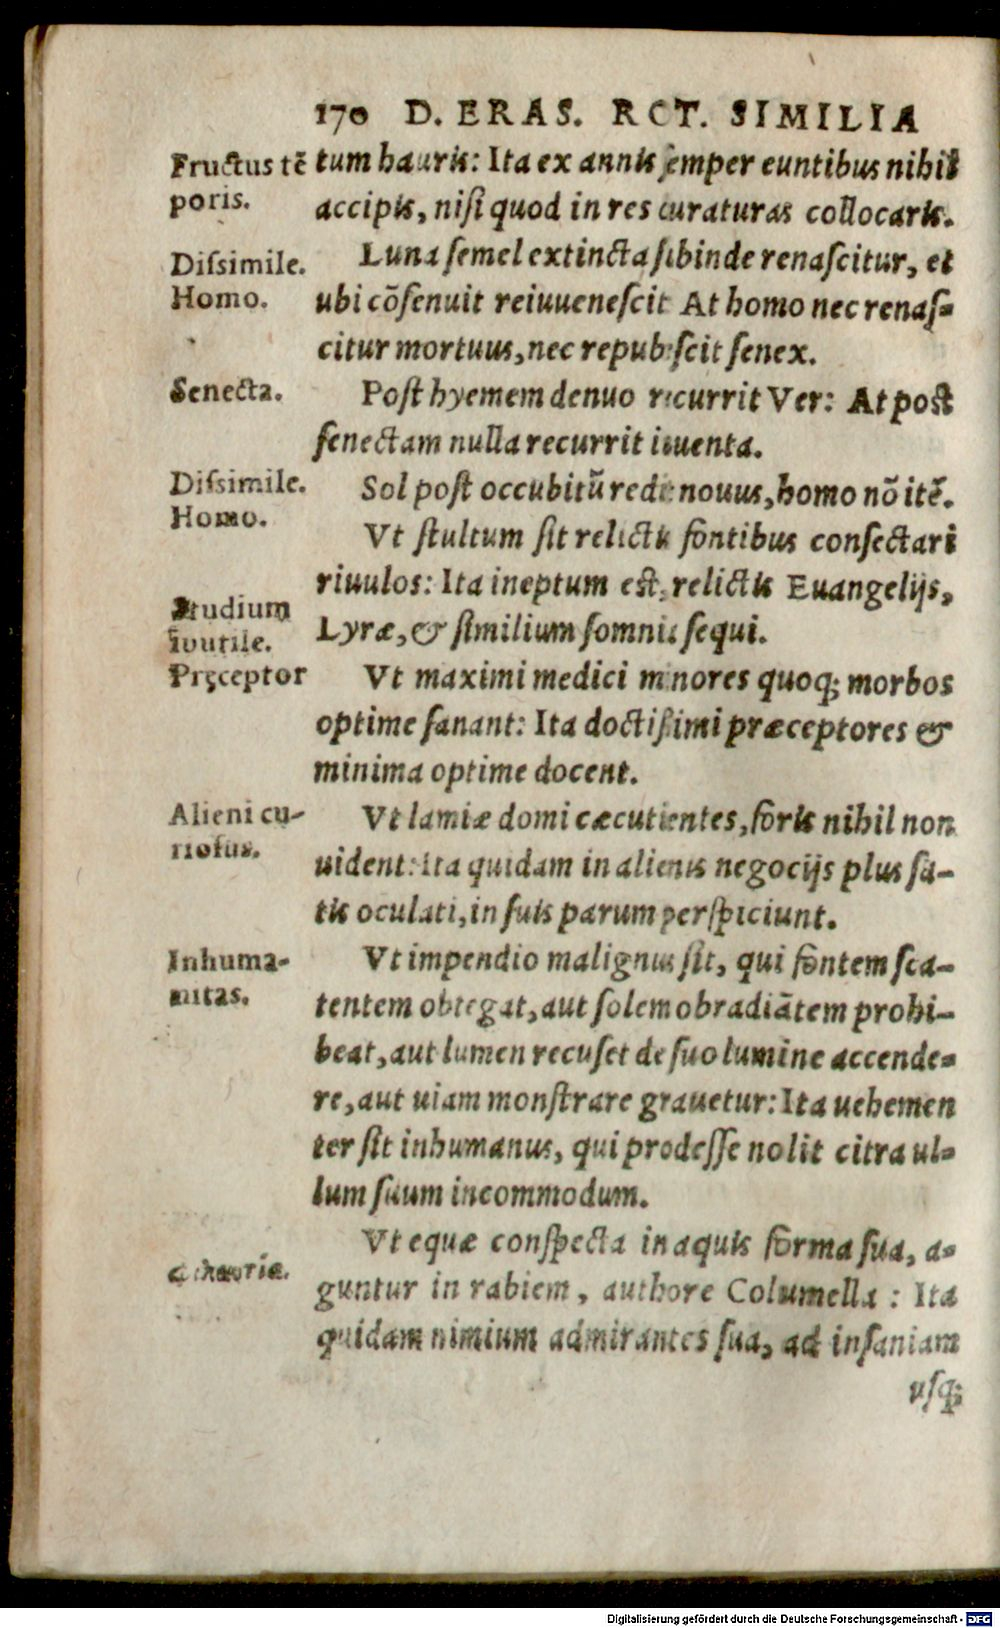 170 D. ERAS. ROT. SIMILIA
Fructus tē
poris.
tum hauris: Ita ex annis semper euntibus nihil
accipis, nisi quod in res curaturas collocaris.
Dissimile.
Homo.
Luna semel extincta subinde renascitur, et
ubi cōsenuit reiuuenescit At homo nec renas-
citur mortuus, nec repubescit senex.
Senecta.
Post hyemem denuo recurrit Ver: At post
senectam nulla recurrit iuuenta.
Dissimile.
Homo.
Sol post occubitū redit nouus, homo nō itē.
Vt stultum sit relictis fontibus consectari
riuulos: Ita ineptum est, relictis Euangelijs,
Lyræ, & similium somnia sequi.
Studium
inutile.
Pręceptor
Vt maximi medici minores quoq; morbos
optime sanant: Ita doctissimi præceptores &
minima optime docent.
Alieni cu-
riosus.
Vt lamiæ domi cæcutientes, foris nihil non
uident: Ita quidam in alienis negocijs plus sa-
tis oculati, in suis parum perspiciunt.
Inhuma-
nitas.
Vt impendio malignus sit, qui fontem sca-
tentem obtegat, aut solem obradiātem prohi-
beat, aut lumen recuset de suo lumine accende-
re, aut uiam monstrare grauetur: Ita uehemen
ter sit inhumanus, qui prodesse nolit citra ul-
lum suum incommodum.
Vt equæ conspecta in aquis forma sua, a-
guntur in rabiem, authore Columella: Ita
quidam nimium admirantes sua, ad insaniam
usq;
Digitalisierung gefördert durch die Deutsche Forschungsgemeinschaft - DFG